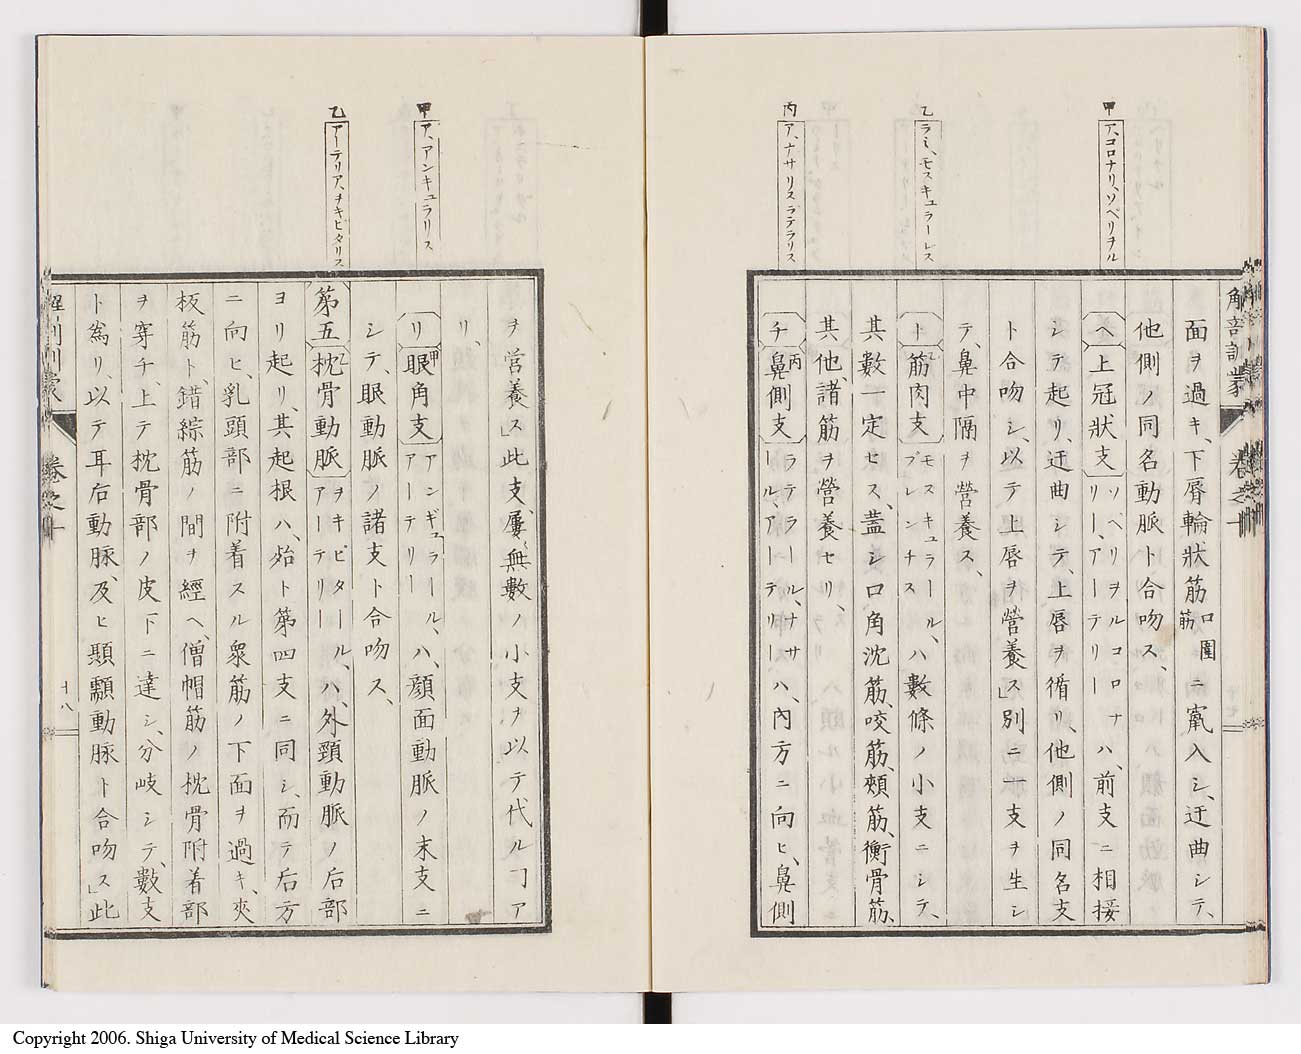 甲 ア、コロナリ、ソペリヲル
乙 ラミ、モスキュラーレス
丙 ア、ナサリスラテラリス
解剖訓蒙 卷之十
面ヲ過キ、下唇輪狀筋口圍筋ニ竄入シ、迂曲シテ、
他側ノ同名動脈ト合吻ス、
ヘ上冠狀支ソペリヲルコロナリー、アーテリーハ、前支ニ相接
シテ起リ、迂曲シテ、上唇ヲ循リ、他側ノ同名支
ト合吻シ、以テ上唇ヲ營養ス」別ニ一支ヲ生シ
テ、鼻中隔ヲ營養ス、
ト筋肉支乙モスキュラール、ブレンチスハ數條ノ小支ニシテ、
其數一定セス、蓋シ口角沈筋、咬筋、頰筋、衡骨筋、
其他、諸筋ヲ營養セリ、
チ鼻側支丙ラテラール、ナサール、アーテリーハ、內方ニ向ヒ、鼻側
甲 ア、アンキュラリス
乙 アーテリア、ヲキピタリス
ヲ營養ス」此支、屢、無數ノ小支ヲ以テ代ルヿア
リ、
リ眼角支甲アンギュラール、アーテリーハ、顔面動脈ノ末支ニ
シテ、眼動脈ノ諸支ト合吻ス、
第五枕骨動脈乙ヲキピタール、アーテリーハ、外頸動脈ノ后部
ヨリ起リ、其起根ハ、殆ト第四支ニ同シ、而テ后方
ニ向ヒ、乳頭部ニ附着スル衆筋ノ下面ヲ過キ、夾
板筋ト、錯綜筋ノ間ヲ經ヘ、僧帽筋ノ枕骨附着部
ヲ穿チ、上テ枕骨部ノ皮下ニ達シ、分岐シテ、數支
ト爲リ、以テ耳后動脈、及ヒ顳顬動脈ト合吻ス」此
卷之十
十八
Copyright 2006. Shiga University of Medical Science Library